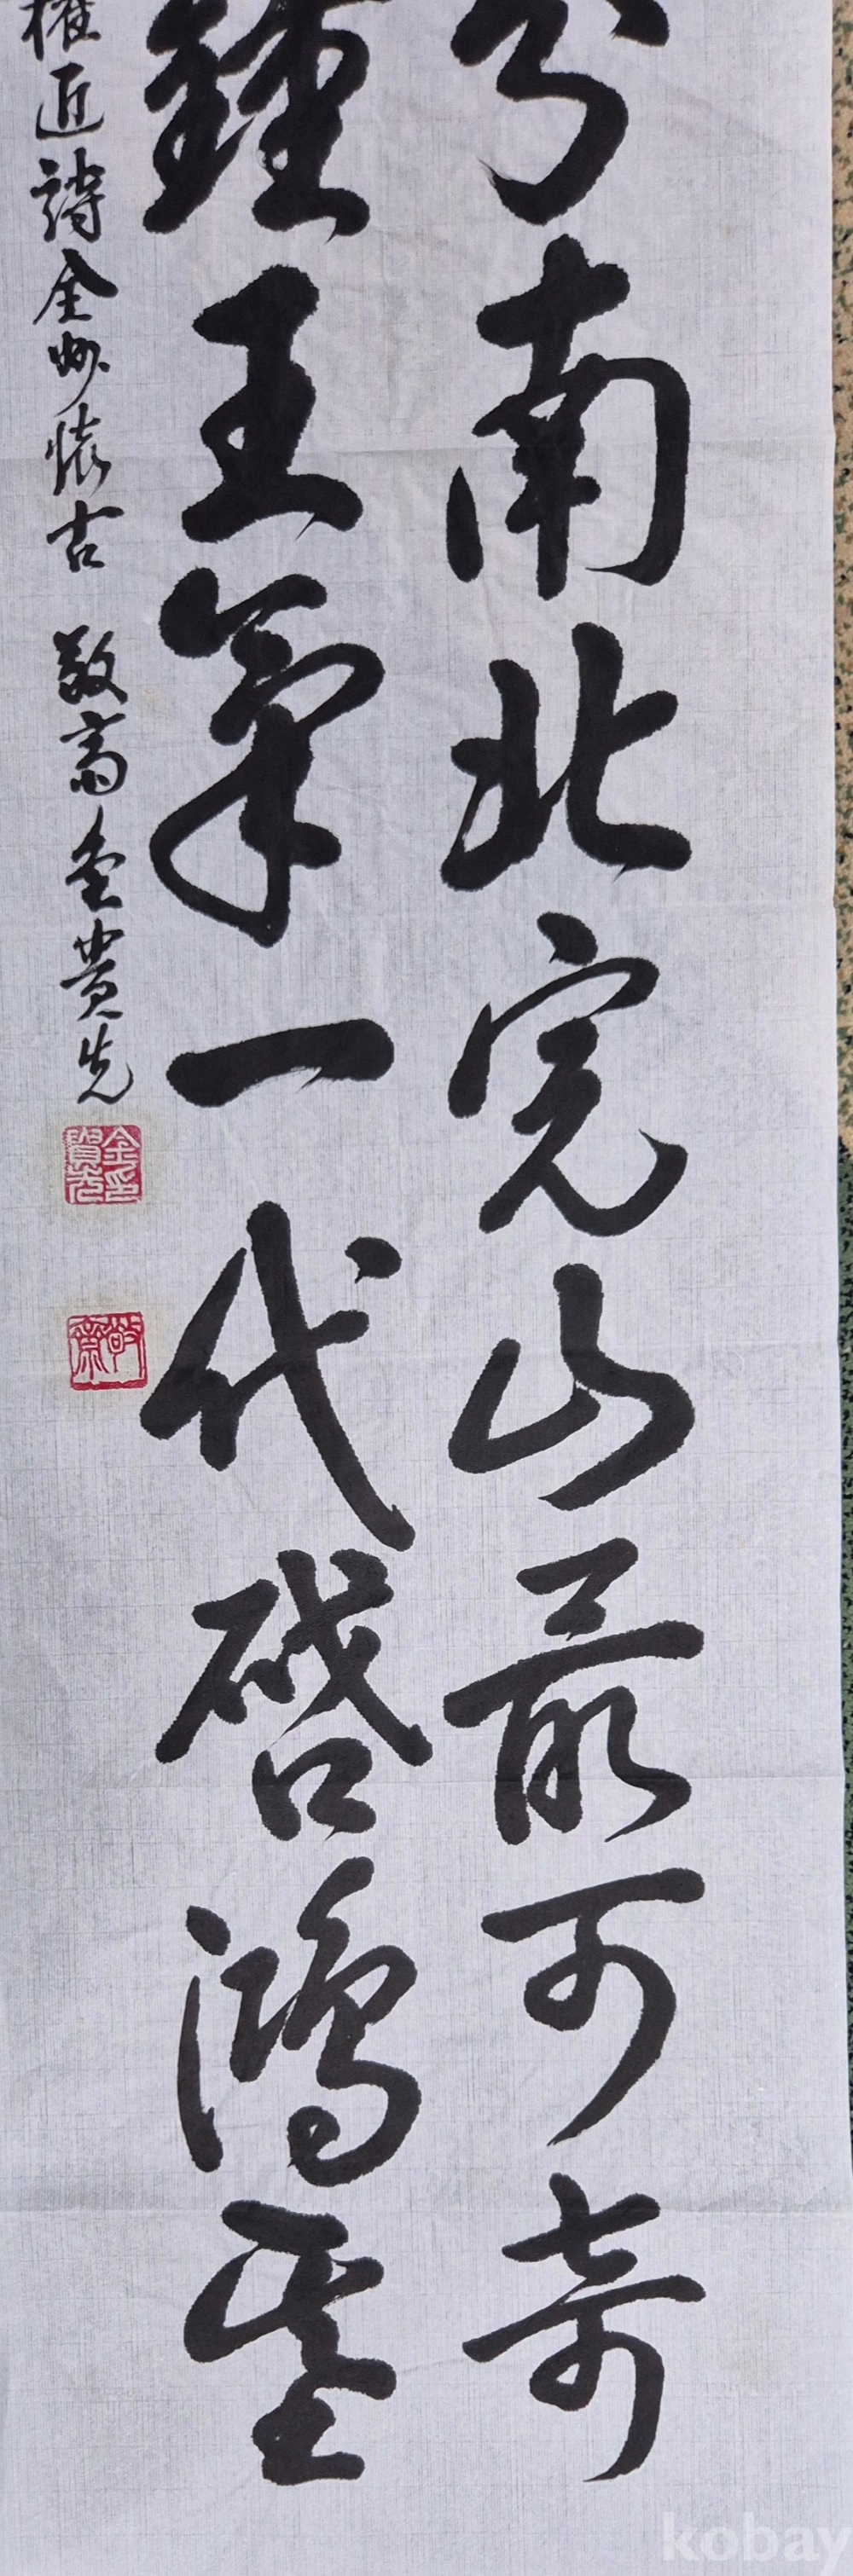 分南北完山最可奇
鍾王氣一代啓鴻基
權近詩全州懷古 敬齋金貴先
金貴先印
敬齋
kobay